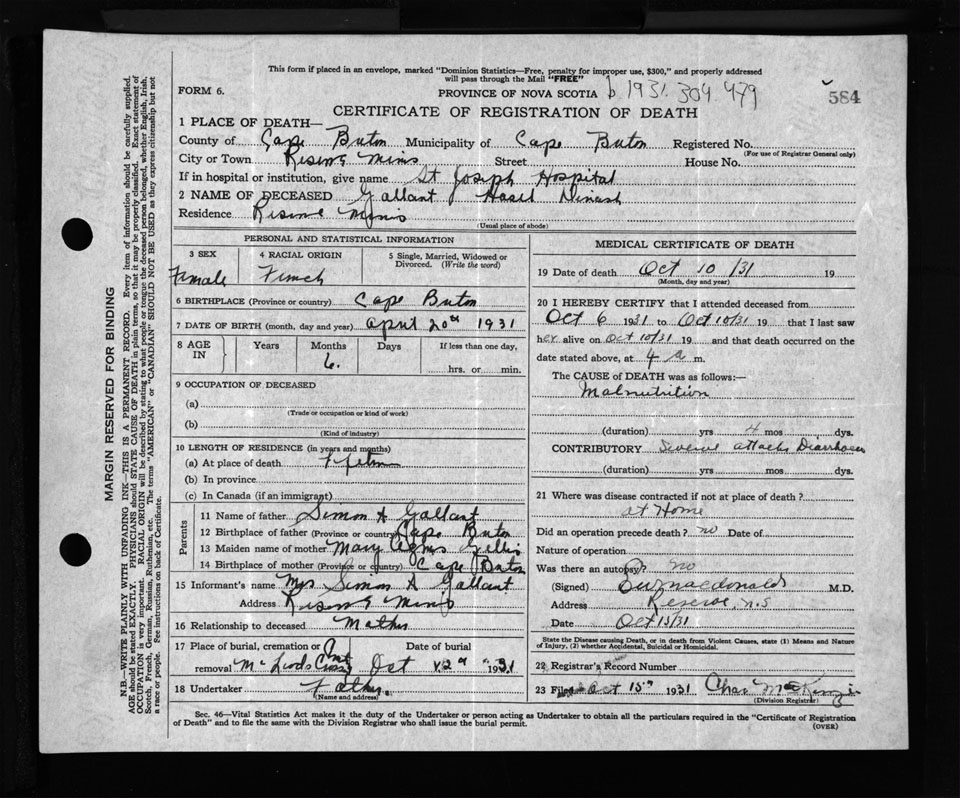 This form if placed in an envelope, marked "Dominion Statistics—Free, penalty for improper use, $300," and properly addressed
will pass through the Mail "FREE"
FORM 6. PROVINCE OF NOVA SCOTIA b 1931. 304 479 584
CERTIFICATE OF REGISTRATION OF DEATH
1 PLACE OF DEATH—
County of Cape Breton Municipality of Cape Breton Registered No.
(For use of Registrar General only)
City or Town Reserve Mines Street House No.
If in hospital or institution, give name St Joseph Hospital
2 NAME OF DECEASED Gallant Hasel
Residence Reserve Mines
(Usual place of abode)
PERSONAL AND STATISTICAL INFORMATION
3 SEX 4 RACIAL ORIGIN 5 Single, Married, Widowed or
Divorced. (Write the word)
Female French
6 BIRTHPLACE (Province or country) Cape Breton
7 DATE OF BIRTH (month, day and year) April 20th 1931
8 AGE IN Years Months Days If less than one day,
6. hrs. or min.
9 OCCUPATION OF DECEASED
(a)
(Trade or occupation or kind of work)
(b)
(Kind of industry)
10 LENGTH OF RESIDENCE (in years and months)
(a) At place of death
(b) In province
(c) In Canada (if an immigrant)
Parents
11 Name of father Simon A Gallant
12 Birthplace of father (Province or country) Cape Breton
13 Maiden name of mother Mary Agnes Gillis
14 Birthplace of mother (Province or country) Cape Breton
15 Informant's name Mrs Simon A Gallant
Address Reserve Mines
16 Relationship to deceased Mother
17 Place of burial, cremation or Date of burial
removal Oct 12th 1931
18 Undertaker Father.
(Name and address)
MEDICAL CERTIFICATE OF DEATH
19 Date of death Oct 10/31 19
(Month, day and year)
20 I HEREBY CERTIFY that I attended deceased from
Oct 6 1931 to Oct 10/31 19 that I last saw
her alive on Oct 10/31 19 and that death occurred on the
date stated above, at 4 a m.
The CAUSE of DEATH was as follows:—
Malnutrition
(duration) yrs 4 mos dys.
CONTRIBUTORY Several attacks Diarrhoea
(duration) yrs mos dys.
21 Where was disease contracted if not at place of death?
at Home
Did an operation precede death? no Date of
Nature of operation
Was there an autopsy? no
(Signed) M.D.
Address Reserve, N.S
Date Oct 13/31
State the Disease causing Death, or in death from Violent Causes, state (1) Means and Nature
of Injury, (2) whether Accidental, Suicidal or Homicidal.
22 Registrar's Record Number
23 Filed Oct 15th 1931 Chas MacKenzie
(Division Registrar)
Sec. 46—Vital Statistics Act makes it the duty of the Undertaker or person acting as Undertaker to obtain all the particulars required in the "Certificate of Registration
of Death" and to file the same with the Division Registrar who shall issue the burial permit.
(OVER)
MARGIN RESERVED FOR BINDING
N.B.—WRITE PLAINLY WITH UNFADING INK—THIS IS A PERMANENT RECORD. Every item of information should be carefully supplied.
AGE should be stated EXACTLY. PHYSICIANS should STATE CAUSE OF DEATH in plain terms, so that it may be properly classified. Exact statement of
OCCUPATION is very important. RACIAL ORIGIN will be described by stating to what people or tongue the deceased person belonged, whether English, Irish,
Scotch, French, German, Russian, Ruthenian, etc. The terms "AMERICAN" or "CANADIAN" SHOULD NOT BE USED as they express citizenship but not
a race or people. See instructions on back of Certificate.